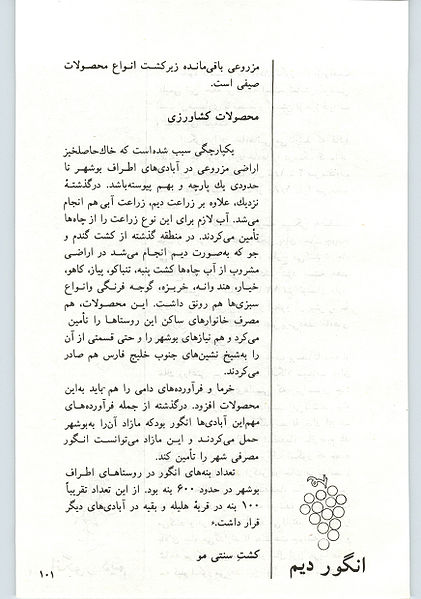 مزروعی باقی‌مانده زیرکشت انواع محصولات
صیفی است.
محصولات کشاورزی
یکپارچگی سبب شده‌است که خاك‌حاصلخیز
اراضی مزروعی در آبادی‌های اطراف بوشهر تا
حدودی یك پارچه و بهم پیوسته‌باشد. درگذشتهٔ
نزدیك، علاوه بر زراعت دیم، زراعت آبی هم انجام
می‌شد. آب لازم برای این نوع زراعت را از چاه‌ها
تأمین می‌کردند. در منطقه گذشته از کشت گندم و
جو که به‌صورت دیم انجام می‌شد در اراضی
مشروب از آب چاه‌ها کشت پنبه، تنباکو، پیاز، کاهو،
خیار، هندوانه، خربزه، گوجه فرنگی وانواع
سبزی‌ها هم رونق داشت. این محصولات، هم
مصرف خانوارهای ساکن این روستاها را تأمین
می‌کرد و هم نیازهای بوشهر را و حتی قسمتی از آن
را به‌شیخ نشین‌های جنوب خلیج فارس هم صادر
می‌کردند.
خرما و فرآورده‌های دامی را هم باید به‌این
محصولات افزود. درگذشته از جمله فرآورده‌های
مهم‌این آبادی‌ها انگور بودکه مازاد آن‌را به‌بوشهر
حمل می‌کردند و این مازاد می‌توانست انگور
مصرفی شهر را تأمین کند.
تعداد بنه‌های انگور در روستاهای اطراف
بوشهر در حدود ۶۰۰ بنه بود. از این تعداد تقریباً
۱۰۰ بنه در قریهٔ هلیله و بقیه در آبادی‌های دیگر
قرار داشت.»
کشت سنتی مو
انگور دیم
۱۰۱